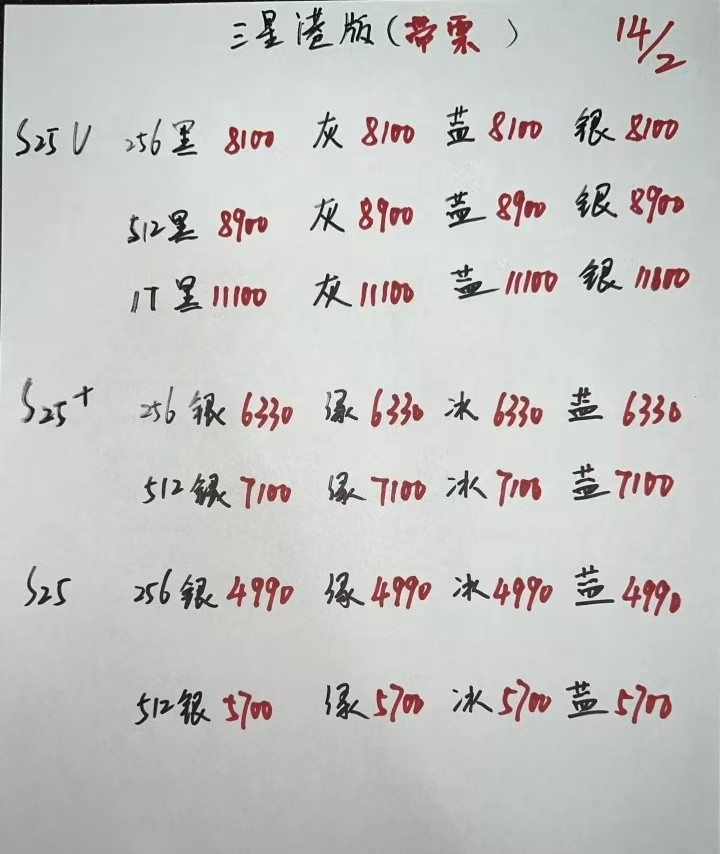 三星港版(带票) 14/2
S25U 256黑 8100 灰 8100 蓝 8100 银 8100
512黑 8900 灰 8900 蓝 8900 银 8900
1T黑 11100 灰 11100 蓝 11100 银
S25+ 256银 6330 绿 6330 冰 6330 蓝 6330
512银 7100 绿 7100 冰 7100 蓝 7100
S25 256银 4990 绿 4990 冰 4990 蓝 4990
512银 5700 绿 5700 冰 5700 蓝 5700